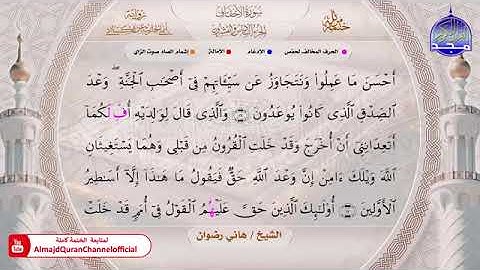 سورة الأحقاف
الحرف المخالف لحفص
الإدغام
الإمالة
إشمام الصاد صوت الزاي
أَحْسَنَ مَا عَمِلُوا۟ وَنَتَجَاوَزُ عَن سَيِّـَٔاتِهِمْ فِىٓ أَصْحَٰبِ ٱلْجَنَّةِ ۖ وَعْدَ
ٱلصِّدْقِ ٱلَّذِى كَانُوا۟ يُوعَدُونَ وَٱلَّذِى قَالَ لِوَٰلِدَيْهِ أُفِّ لَّكُمَآ
أَتَعِدَانِنِىٓ أَنْ أُخْرَجَ وَقَدْ خَلَتِ ٱلْقُرُونُ مِن قَبْلِى وَهُمَا يَسْتَغِيثَانِ
ٱللَّهَ وَيْلَكَ ءَامِنْ إِنَّ وَعْدَ ٱللَّهِ حَقٌّ فَيَقُولُ مَا هَٰذَآ إِلَّآ أَسَٰطِيرُ
ٱلْأَوَّلِينَ أُو۟لَٰٓئِكَ ٱلَّذِينَ حَقَّ عَلَيْهُمُ ٱلْقَوْلُ فِىٓ أُمَمٍ قَدْ خَلَتْ
الشيخ / هاني رضوان
لمتابعة الختمة كاملة
AlmajdQuranChannelofficial